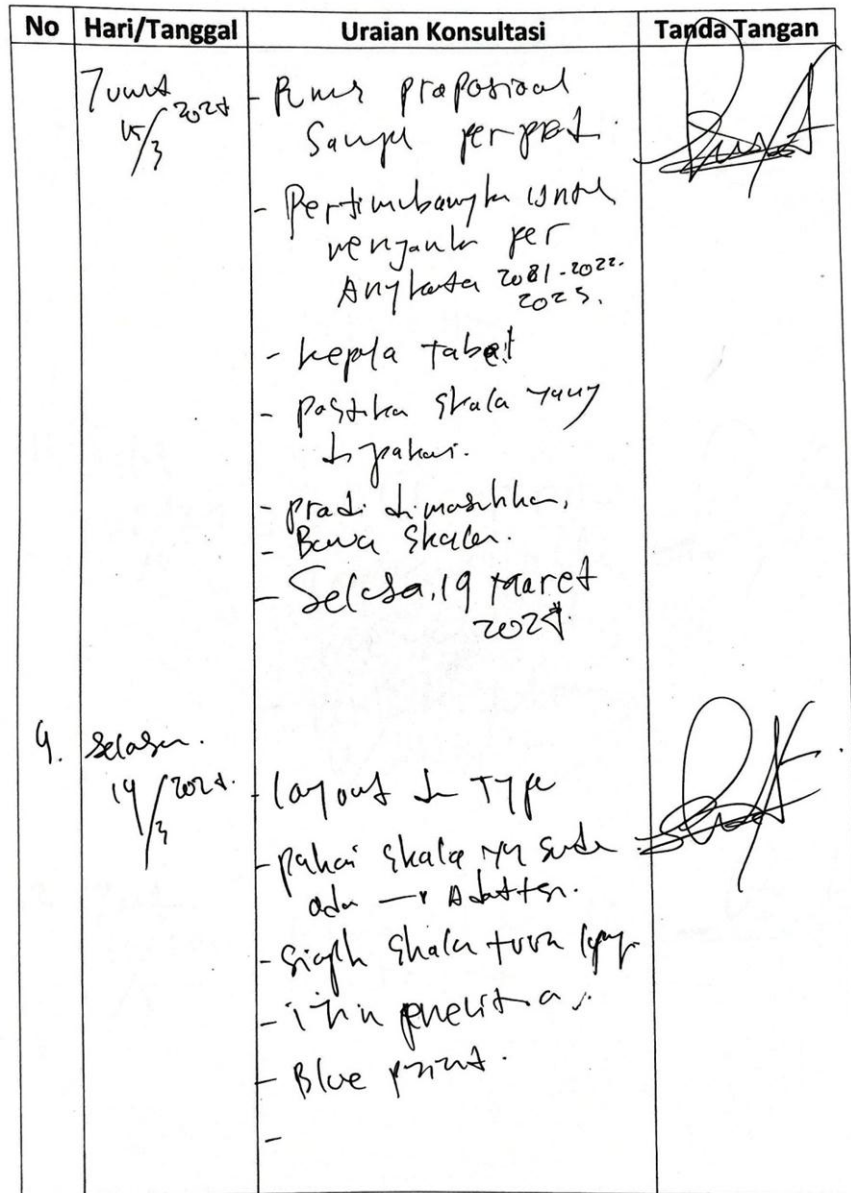 No Hari/Tanggal Uraian Konsultasi Tanda Tangan
Jumat
15/3 2024
- Rumus proposional
Sampel per prodi.
- Pertimbangkan untuk
per
Angkatan 2021-2022.
2023.
- kepala tabel
- pastikan skala yang
di pakai.
- prodi dimasukkan,
- Bawa skala.
- Selasa, 19 Maret
2024.
9. Selasa.
19/3 2024.
- layout di Type
- pakai skala yg sudah
ada → Adaptasi.
- siapkan skala turun
- izin penelitian.
- Blue print.
-